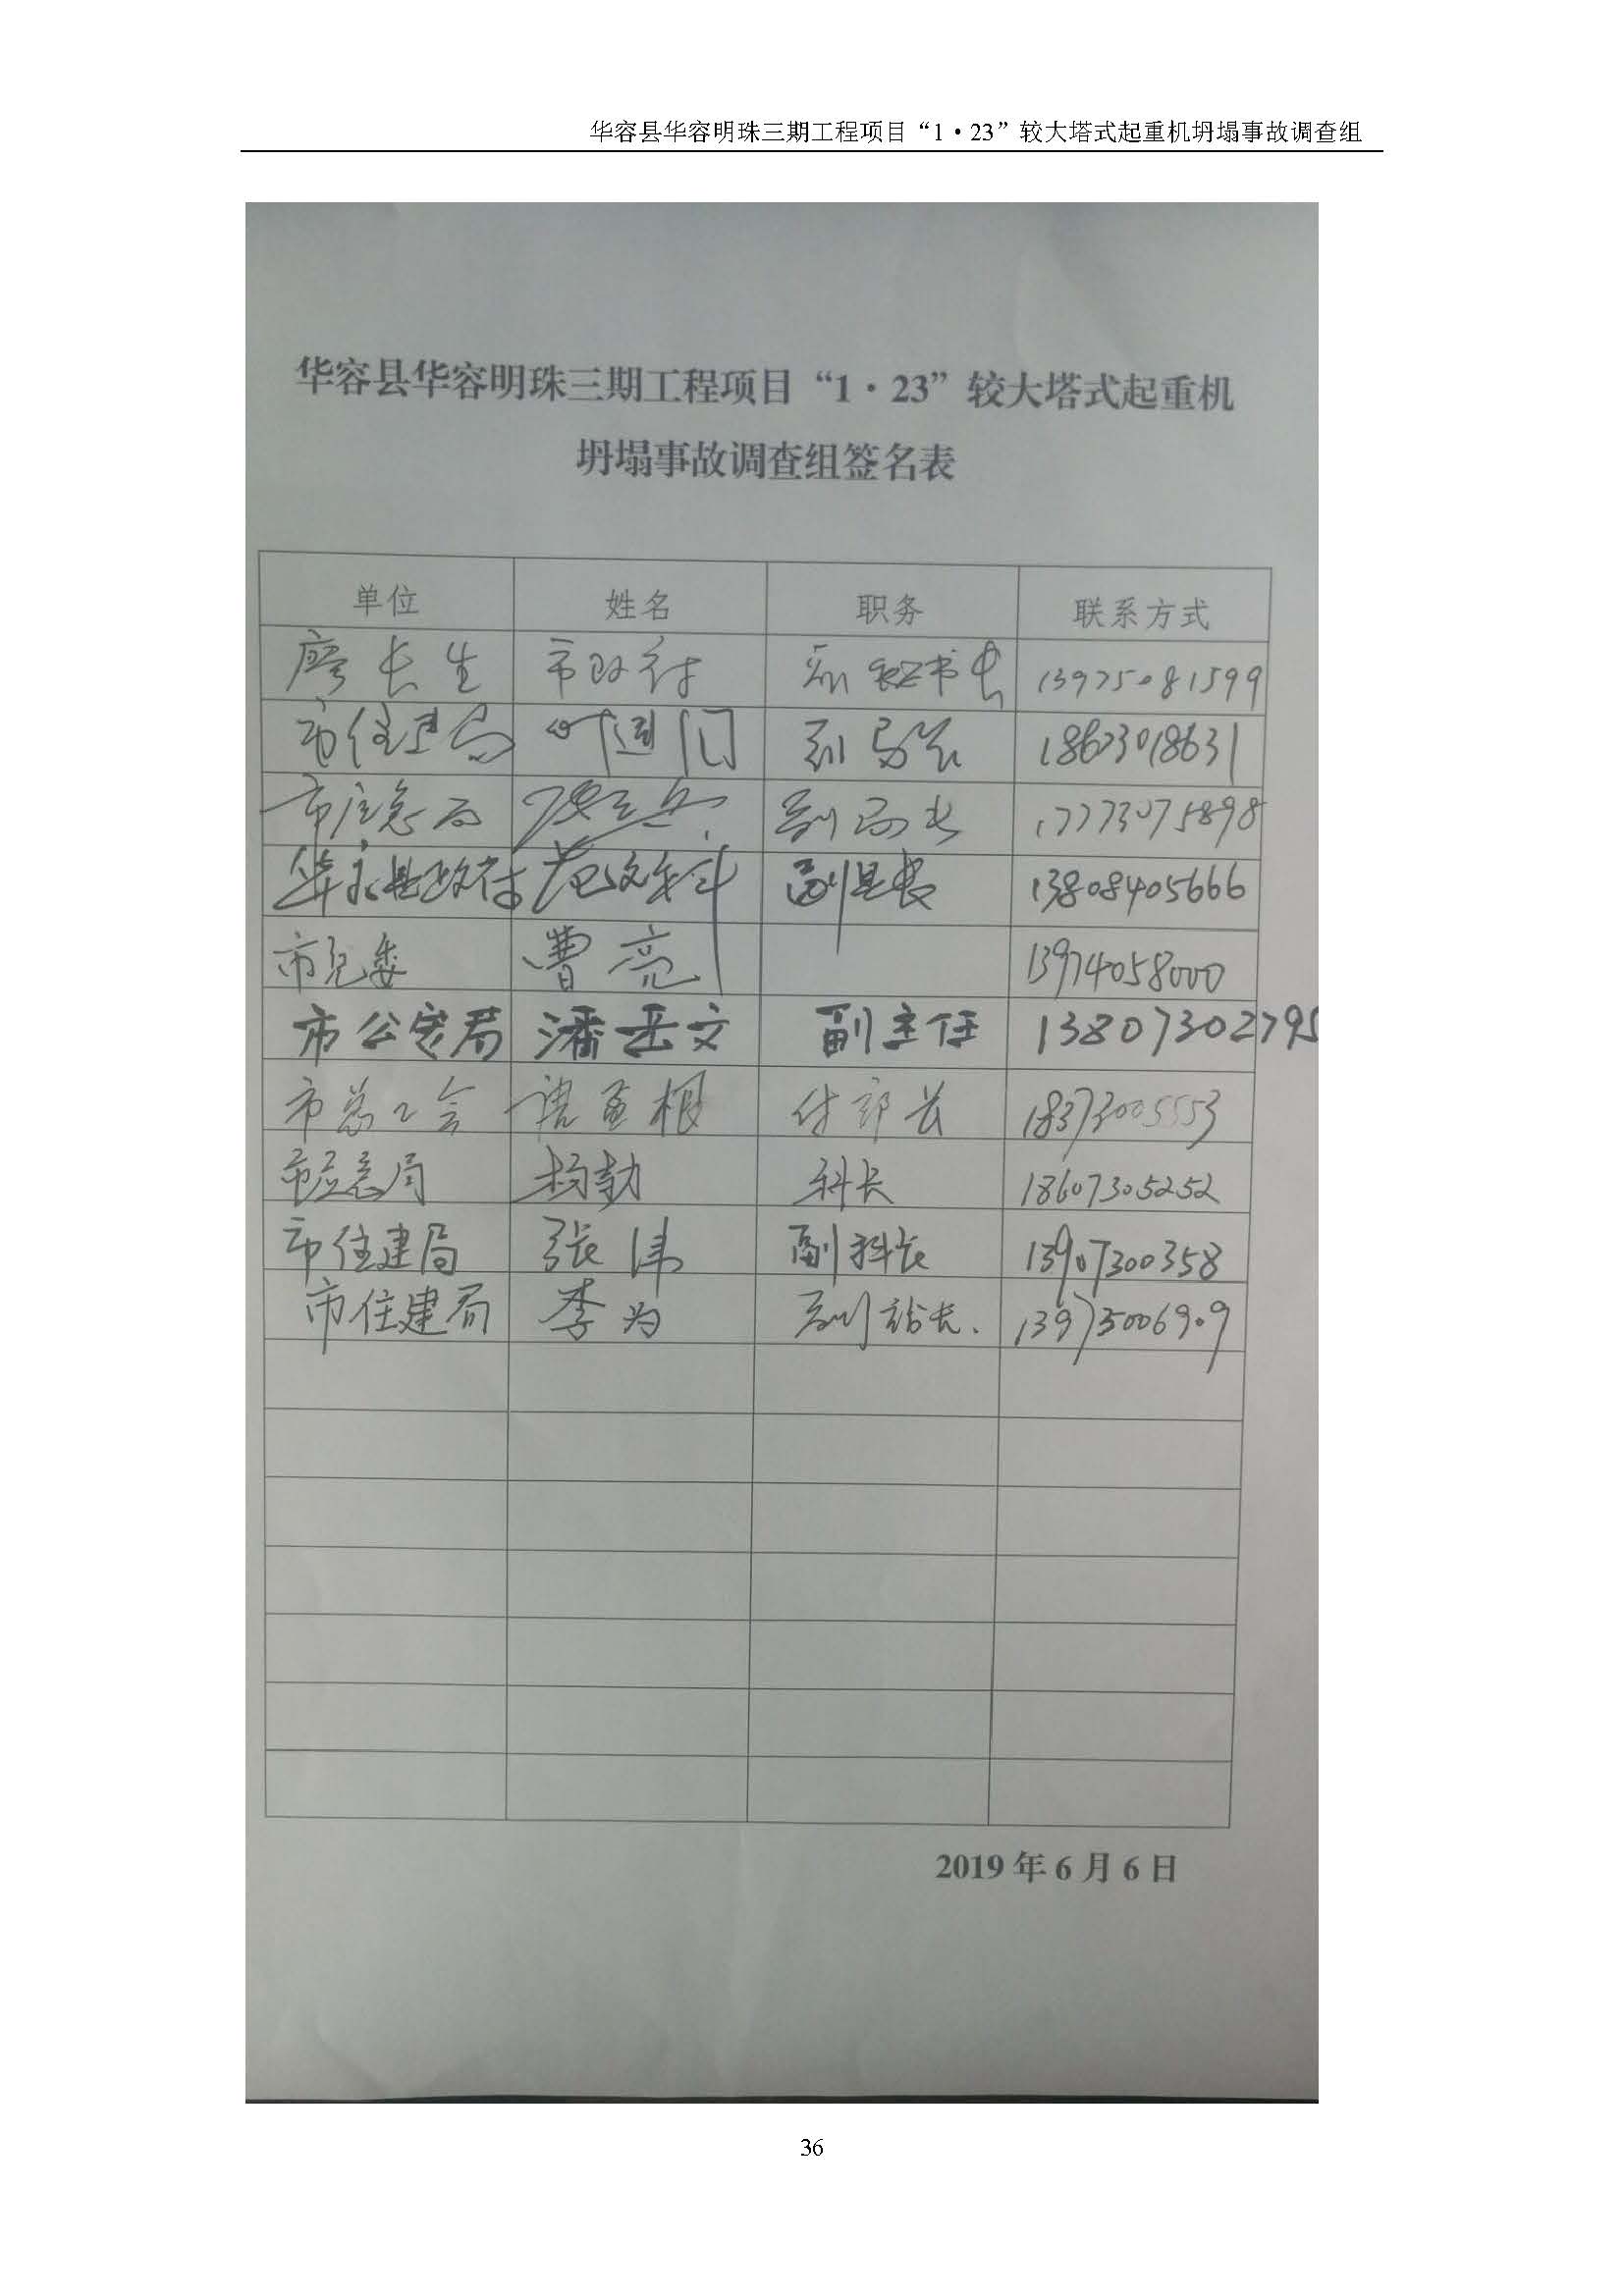 华容县华容明珠三期工程项目“1·23”较大塔式起重机坍塌事故调查组
华容县华容明珠三期工程项目“1·23”较大塔式起重机
坍塌事故调查组签名表
单位 姓名 职务 联系方式
廖长生 市政府 副秘书长 13975081599
市住建局 副局长 18673018631
市应急局 副局长 17773075898
华容县政府 范文科 副县长 13808405666
市纪委 曹亮 13974058000
市公安局 潘岳文 副主任 13807302795
市总工会 付部长 18373005553
市应急局 杨勃 科长 18607305252
市住建局 张伟 副科长 13907300358
市住建局 李为 副站长. 13975006909
2019年6月6日
36